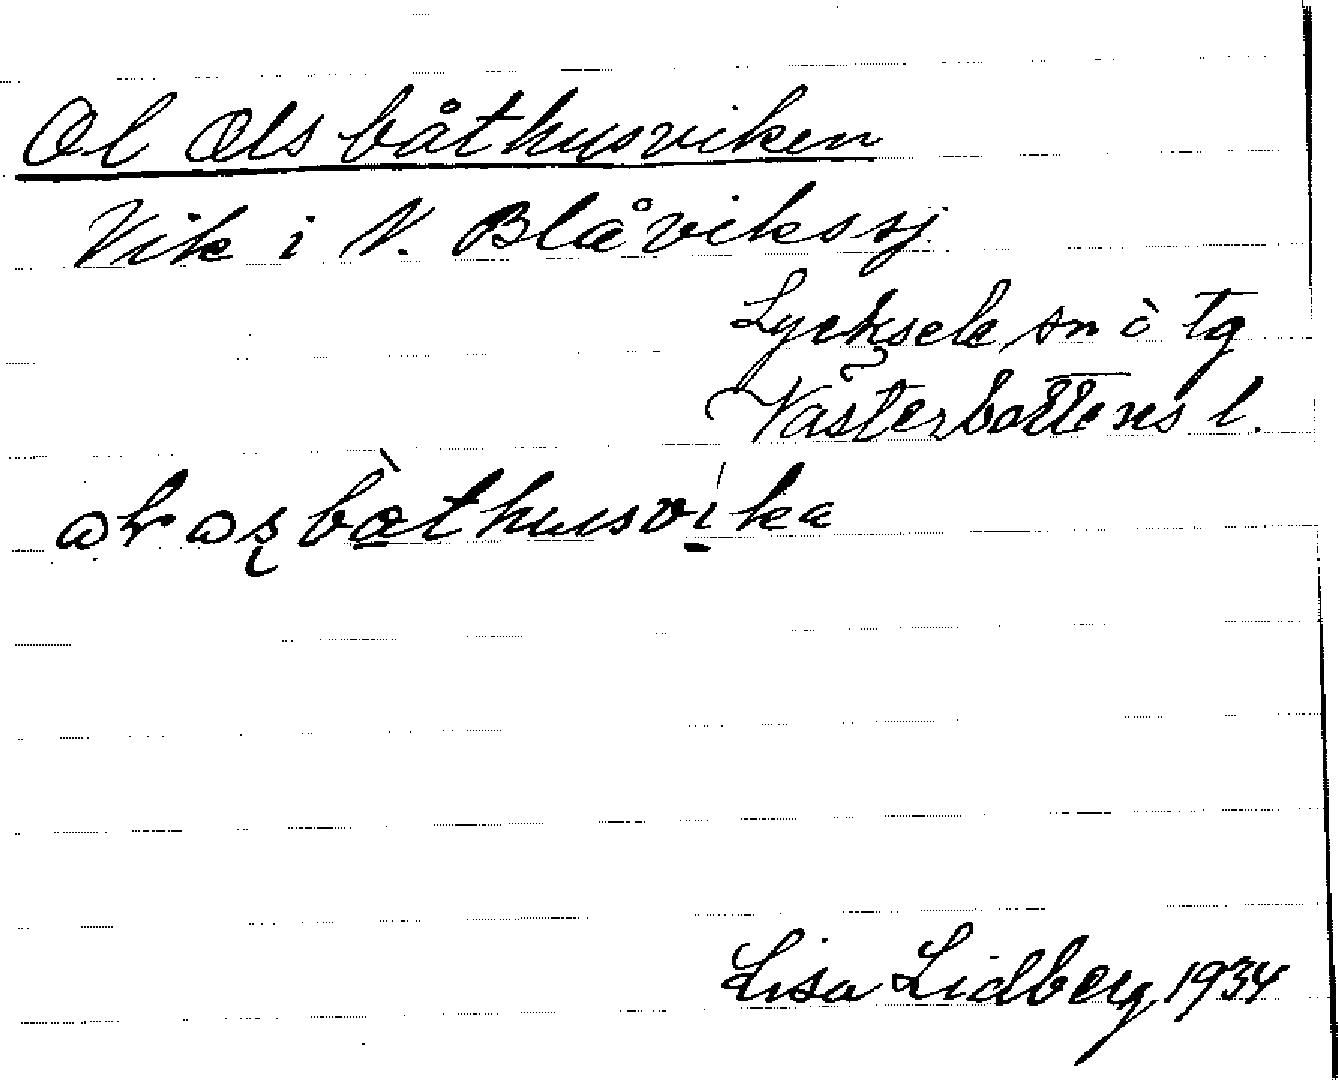 Ol Ols båthusviken
Vik i N. Blåvikssj.
Lycksele sn o tg
Västerbottens l.
båthusvika
Lisa Lidberg, 1934